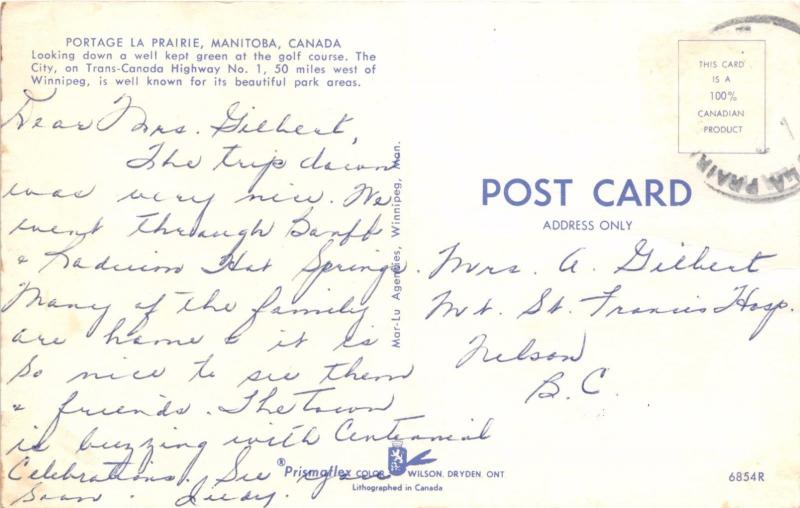 PORTAGE LA PRAIRIE, MANITOBA, CANADA
Looking down a well kept green at the golf course. The
City, on Trans-Canada Highway No. 1, 50 miles west of
Winnipeg, is well known for its beautiful park areas.
Dear Mrs. Gilbert,
The trip down
was very nice. We
went through Banff
& Radium Hot Springs.
Many of the family
are home & it is
so nice to see them
& friends. The town
is buzzing with Centennial
Celebrations. See you
soon. Judy.
Mar-Lu Agencies, Winnipeg, Man.
THIS CARD
IS A
100%
CANADIAN
PRODUCT
LA PRAIRI
POST CARD
ADDRESS ONLY
Mrs. A. Gilbert
Mt. St. Francis Hosp.
Nelson
B.C.
®Prismaflex COLOR WILSON, DRYDEN, ONT
Lithographed in Canada
6854R